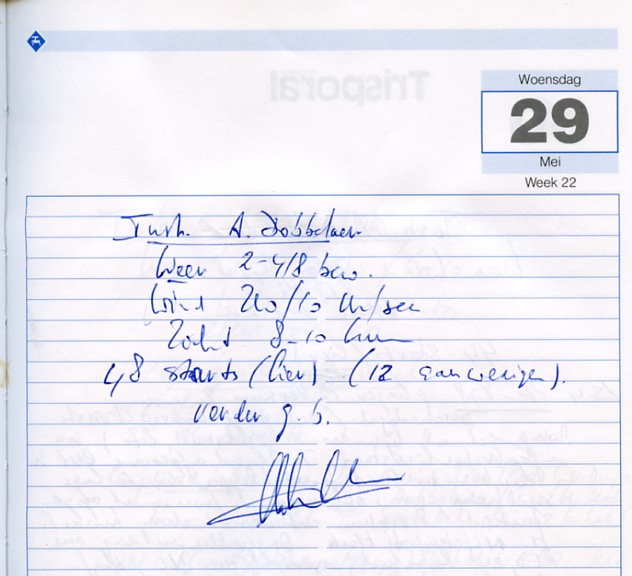 Trisporal
Woensdag
29
Mei
Week 22
Instr. A. Dobbelaer
Weer 2-4/8 bew.
Wind 240/10 m/sec
Zicht 8-10 km
48 starts (lier) (12 aanwezigen).
verder g.b.